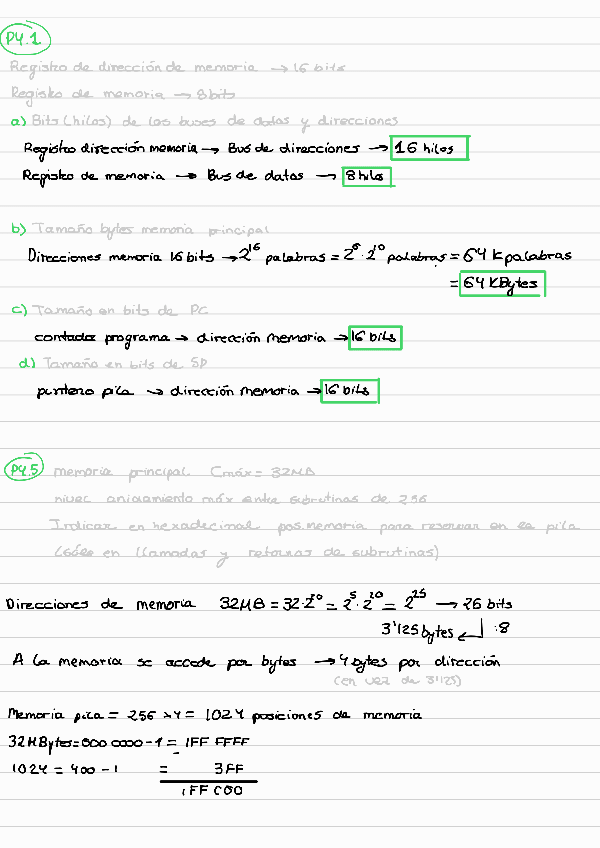 P4.1
Registro de dirección de memoria → 16 bits
Registro de memoria → 8 bits
a) Bits (hilos) de los buses de datos y direcciones
Registro dirección memoria → Bus de direcciones → 16 hilos
Registro de memoria → Bus de datos → 8 hilos
b) Tamaño bytes memoria principal
Direcciones memoria 16 bits → 2^16 palabras = 2^6 · 2^10 palabras = 64 K palabras
= 64 KBytes
c) Tamaño en bits de PC
contador programa → dirección memoria → 16 bits
d) Tamaño en bits de SP
puntero pila → dirección memoria → 16 bits
P4.5 Memoria principal Cmáx = 32MB
nivel anidamiento máx entre subrutinas de 256
Indicar en hexadecimal pos.memoria para reservar en la pila
(sólo en llamadas y retornos de subrutinas)
Direcciones de memoria 32MB = 32·2^20 = 2^5 · 2^20 = 2^25 → 26 bits
3'125 bytes ↵ :8
A la memoria se accede por bytes → 4 bytes por dirección
(en vez de 3'125)
Memoria pila = 256 × 4 = 1024 posiciones de memoria
32MBytes = 000 0000 - 1 = 1FF FFFF
1024 = 400 - 1 = 3FF
1FF C00